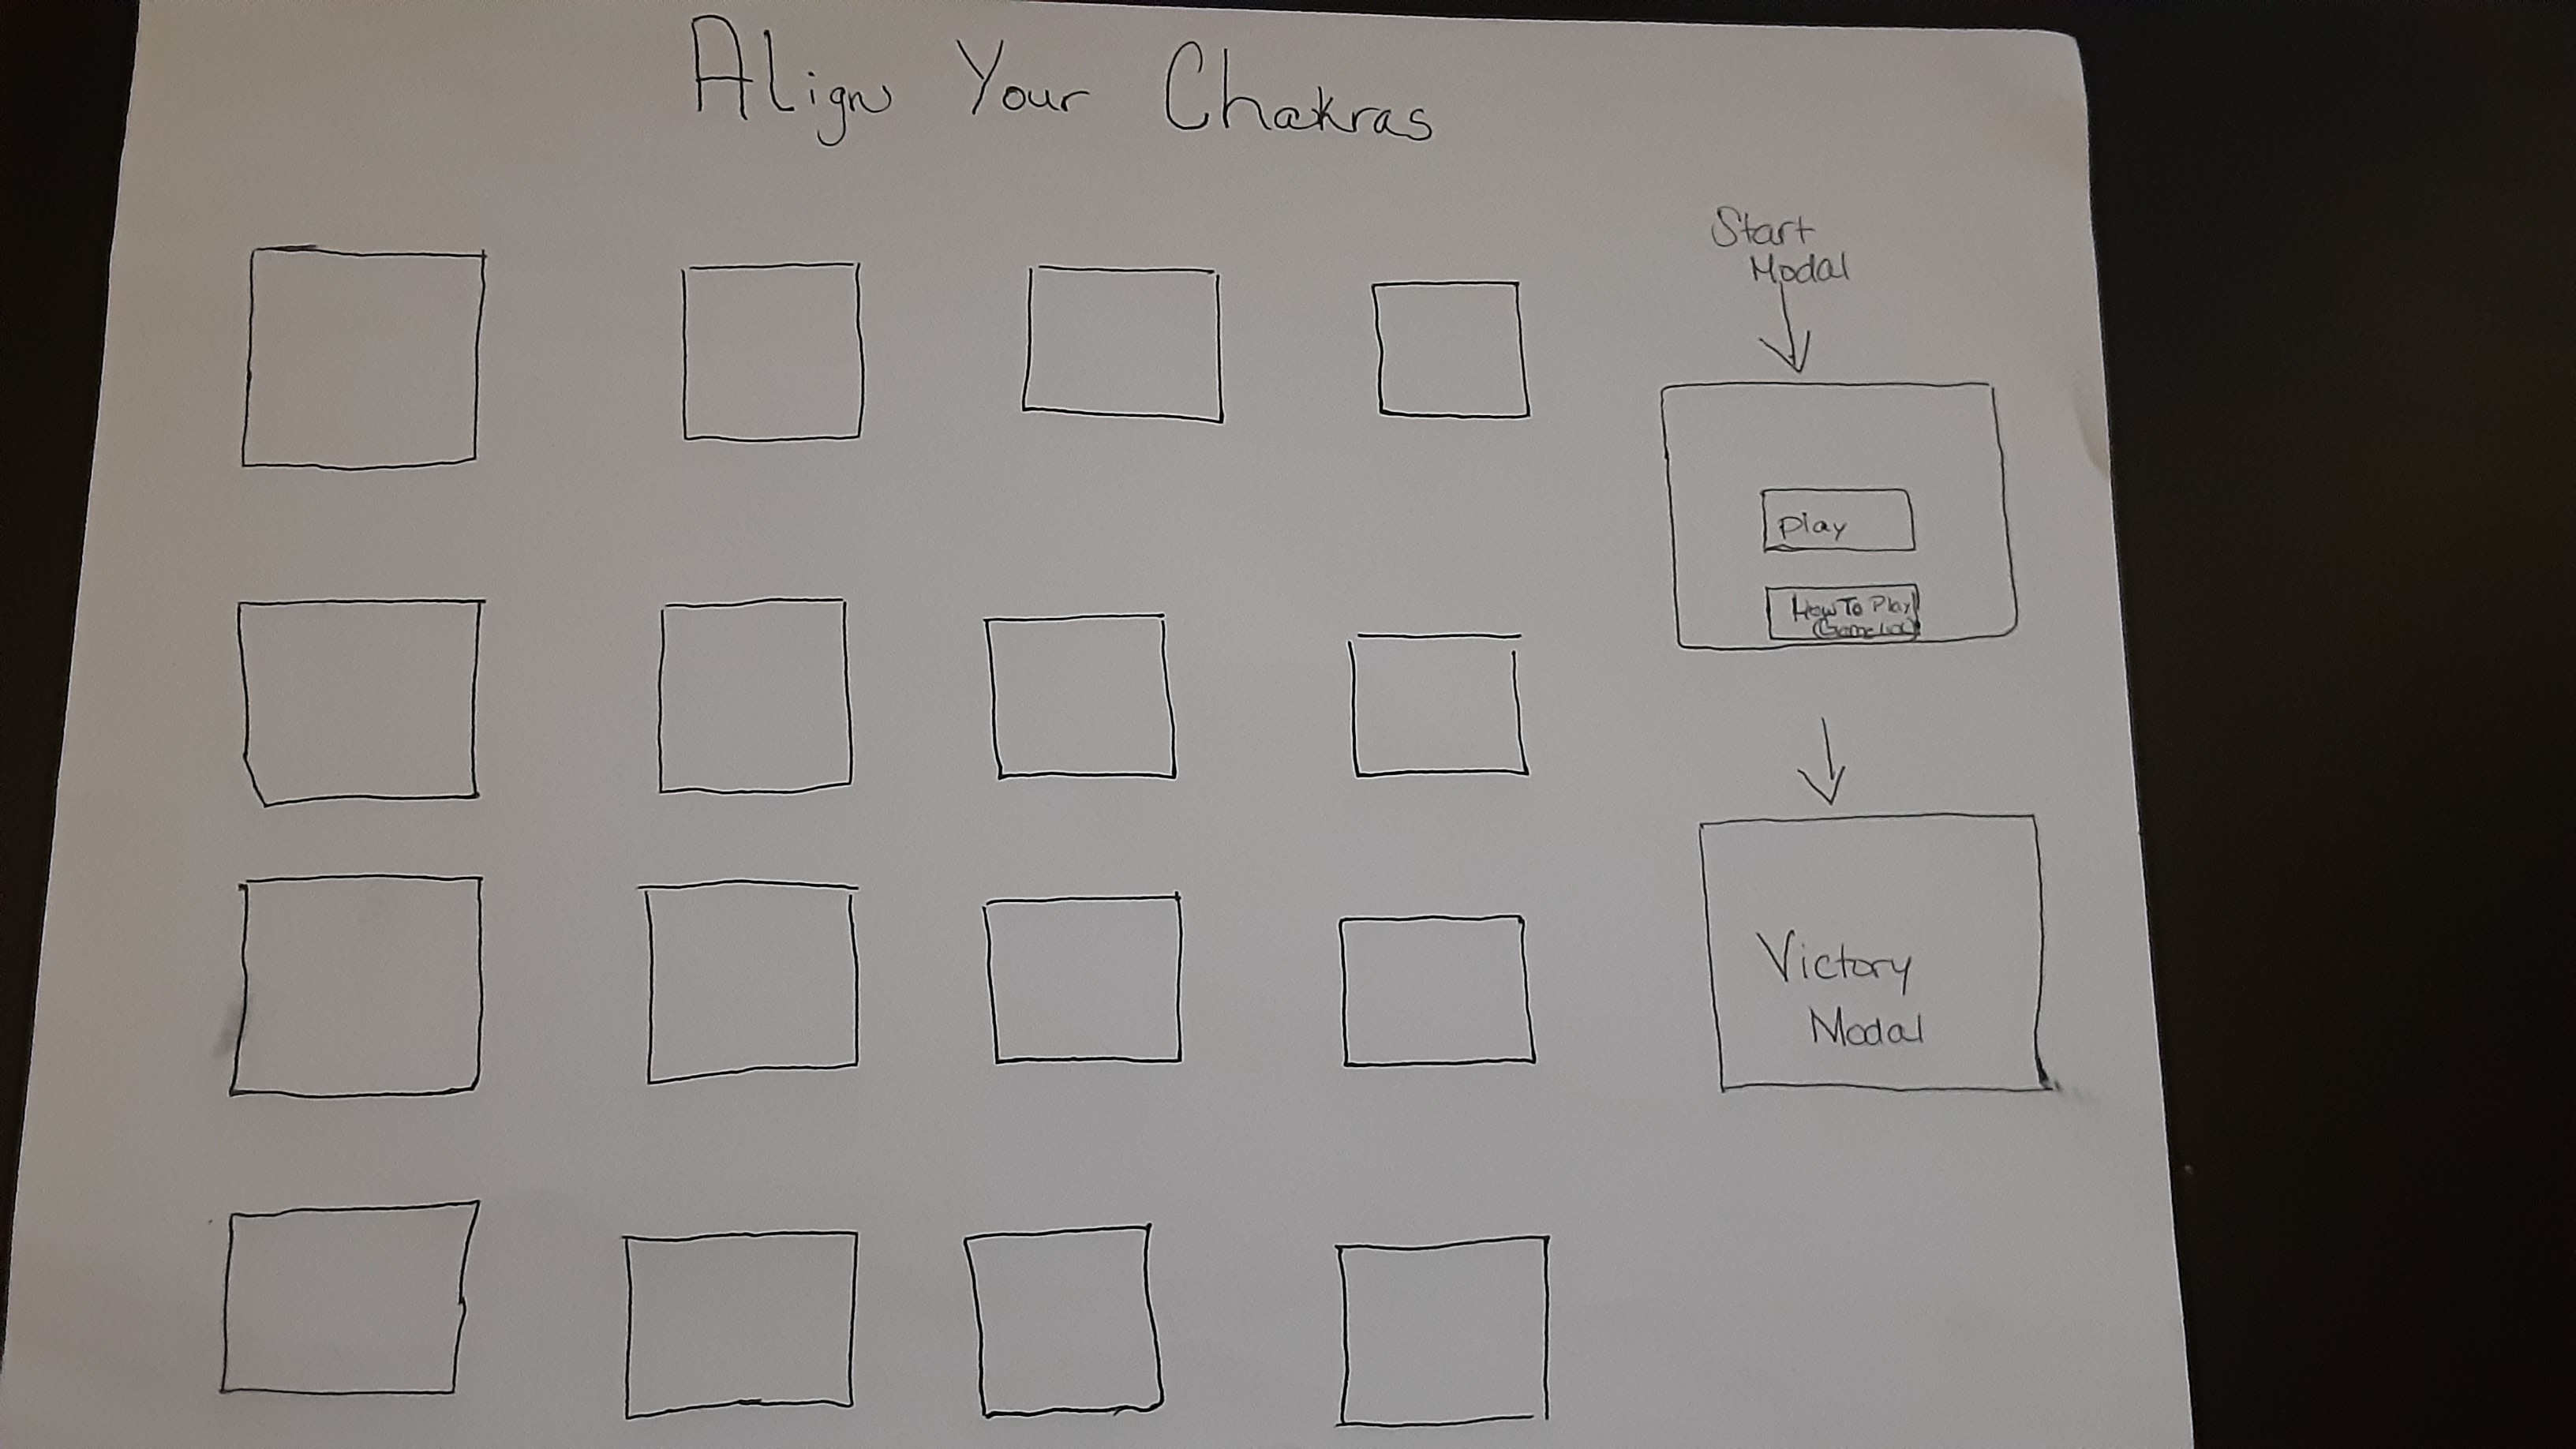 Align Your Chakras
Start
Modal
play
How To Play
Victory
Modal